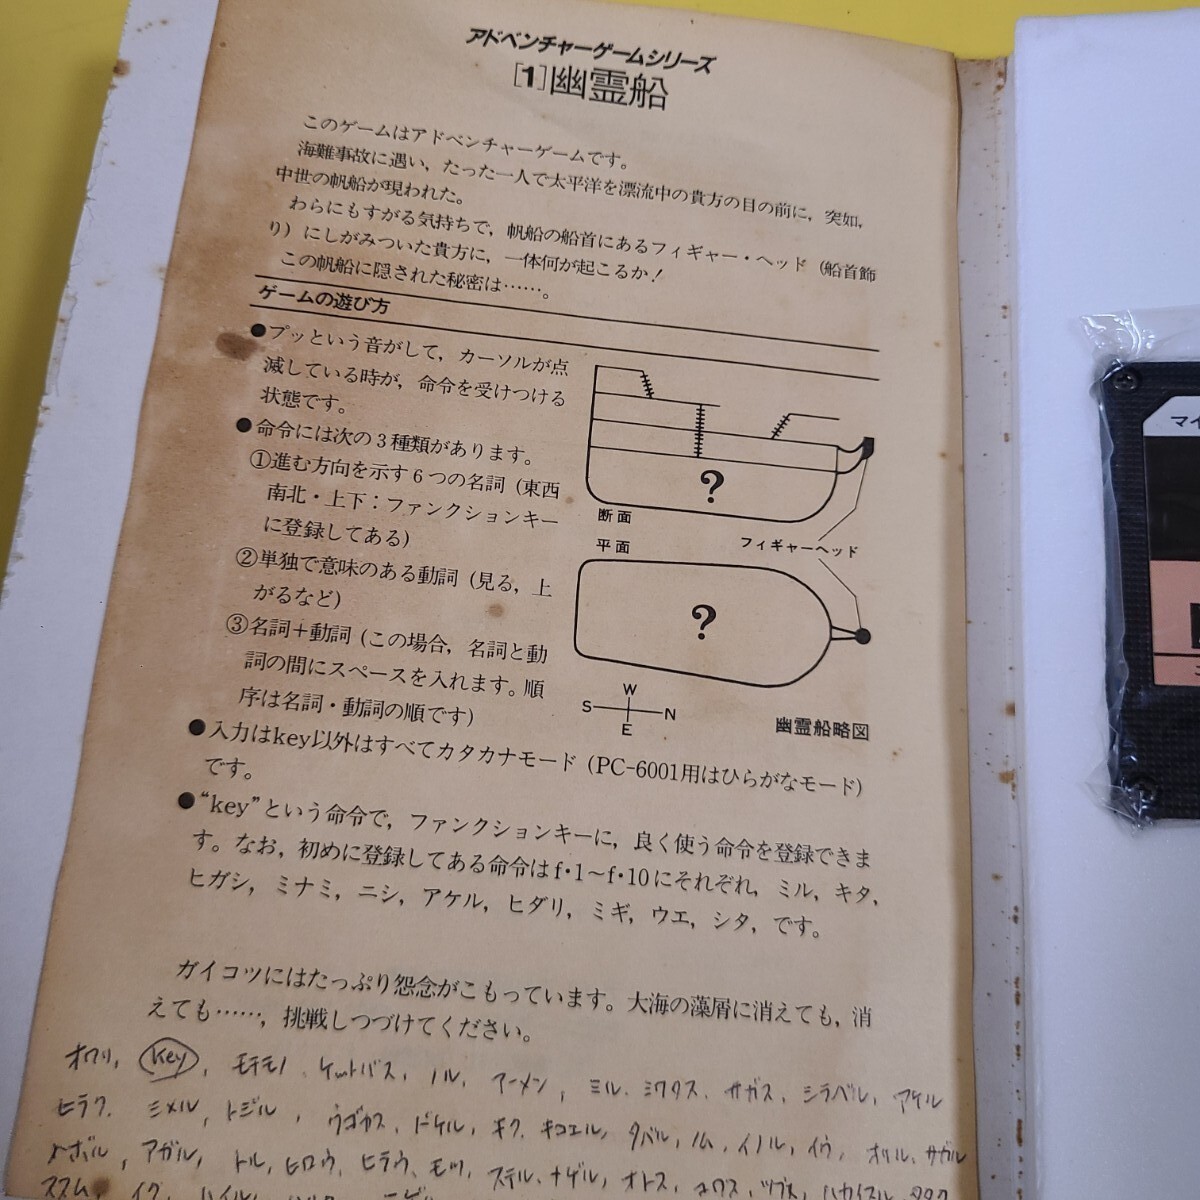 アドベンチャーゲームシリーズ
[1]幽霊船
このゲームはアドベンチャーゲームです。
海難事故に遇い，たった一人で太平洋を漂流中の貴方の目の前に，突如，
中世の帆船が現われた。
わらにもすがる気持ちで，帆船の船首にあるフィギャー・ヘッド（船首飾
り）にしがみついた貴方に，一体何が起こるか！
この帆船に隠された秘密は……。
ゲームの遊び方
●プッという音がして，カーソルが点
滅している時が，命令を受けつける
状態です。
●命令には次の3種類があります。
①進む方向を示す6つの名詞（東西
南北・上下：ファンクションキー
に登録してある）
②単独で意味のある動詞（見る，上
がるなど）
③名詞＋動詞（この場合，名詞と動
詞の間にスペースを入れます。順
序は名詞・動詞の順です）
?
断面
フィギャーヘッド
平面
?
W
S N
E
幽霊船略図
●入力はkey以外はすべてカタカナモード（PC-6001用はひらがなモード）
です。
●“key”という命令で，ファンクションキーに，良く使う命令を登録できま
す。なお，初めに登録してある命令はf・1〜f・10にそれぞれ，ミル，キタ，
ヒガシ，ミナミ，ニシ，アケル，ヒダリ，ミギ，ウエ，シタ，です。
ガイコツにはたっぷり怨念がこもっています。大海の藻屑に消えても，消
えても……，挑戦しつづけてください。
オワリ, key, モチモノ, ケットバス, ノル, アーメン, ミル, ミワタス, サガス, シラベル, アケル
ヒラク, シメル, トジル, ウゴカス, ドケル, キク, キコエル, タベル, ノム, イノル, イウ, オリル, サガル
ノボル, アガル, トル, ヒロウ, ヒラウ, モツ, ステル, ナゲル, オトス, コワス, ツブス, ハカイスル, タタク
ススム, イク, ハイル
マイ